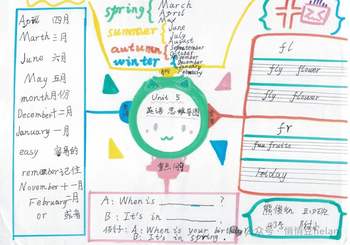 April 四月
March 三月
June 六月
May 五月
month 月份
December 十二月
January 一月
easy 容易的
remember 记住
November 十一月
February 二月
or 或者
spring
March
April
May
summer
June
July
August
autumn
September
October
November
winter
December
January
February
Unit 5
英语 思维导图
重点句
A: When is ?
B: It's in .
A: When is your birthday?
B: It's in spring.
fl
fly flower
fly flower
fr
fruits
Friday